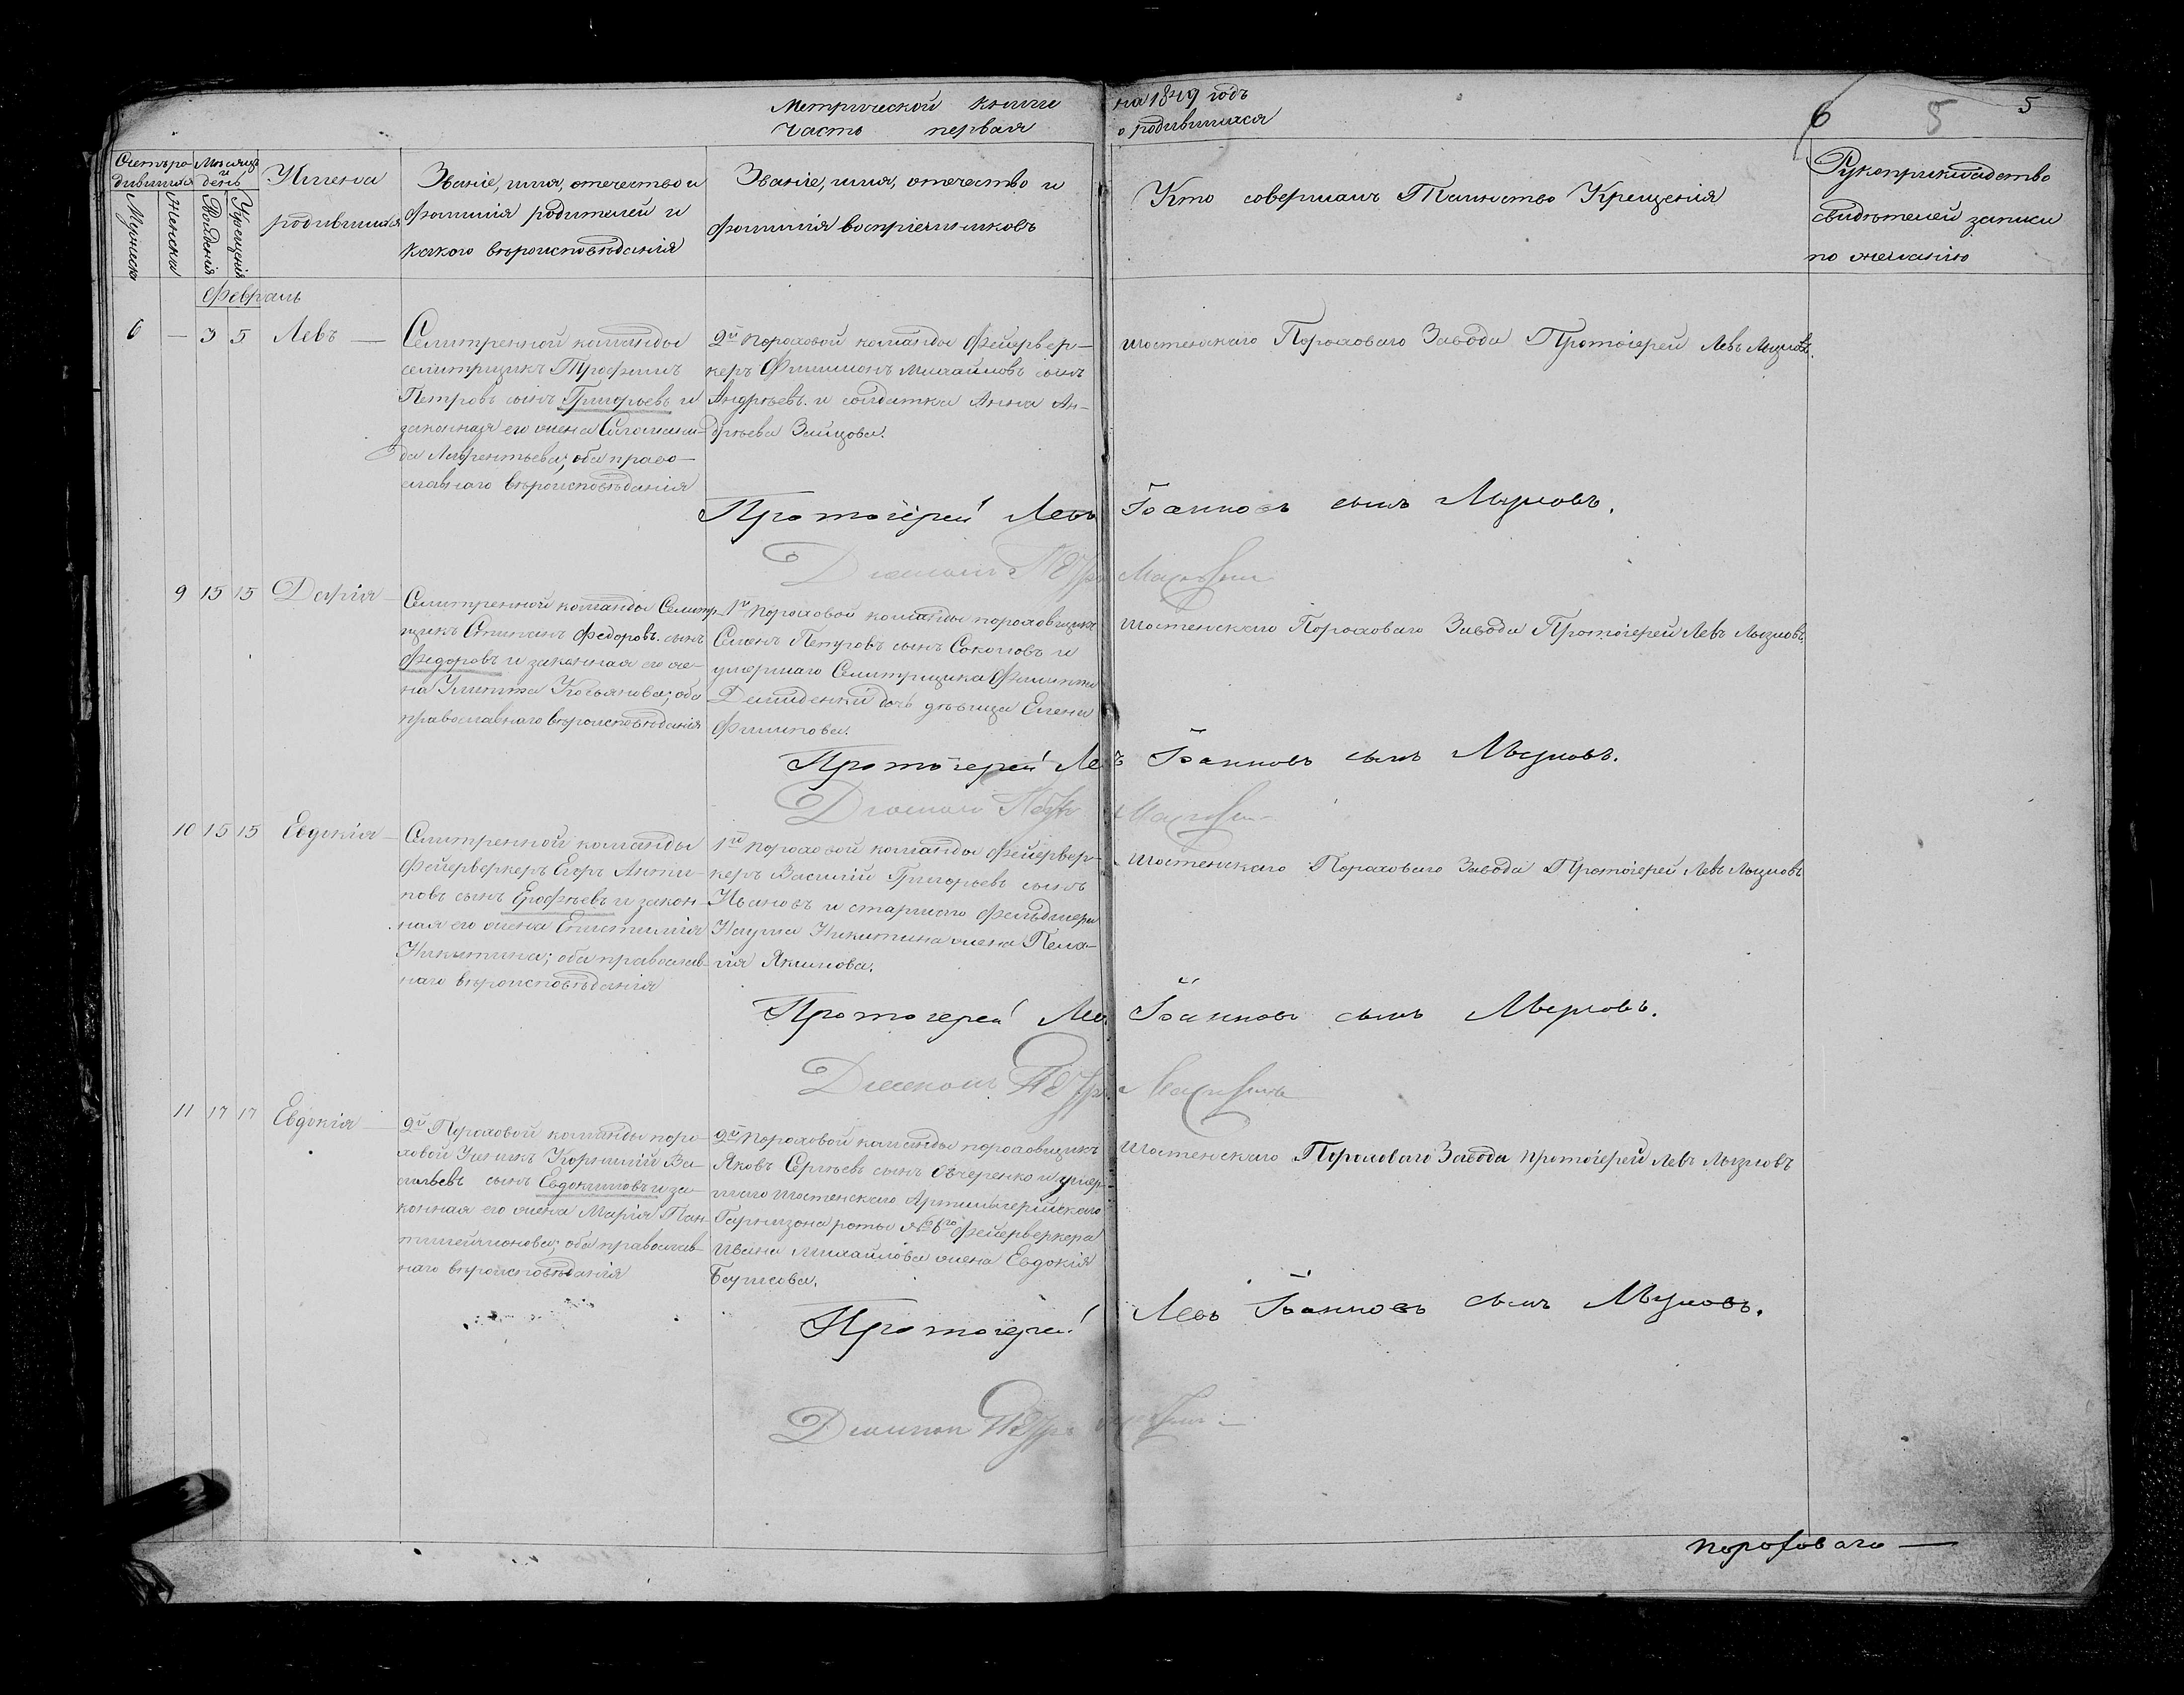 Метрической книги на 1849 годъ
Часть первая о родившихся
6 5 5
Счетъ ро-
дившихся
Мужеска
Женска
Мѣсяцъ
и
день
Рожденія
Крещенія
Имена
родившихся
Званіе, имя, отечество и
фамилія родителей и
какого вѣроисповѣданія
Званіе, имя, отечество и
фамилія воспріемниковъ
Кто совершалъ Таинство Крещенія
Рукоприкладство
свидѣтелей записи
по желанію
Февраль
6 — 3 5 Левъ —
Селитренной команды
селитрщикъ Трофимъ
Петровъ сынъ Григорьевъ и
законная его жена Саломани-
да Лаврентьева; оба право-
славнаго вѣроисповѣданія
2й пороховой команды фейервер-
керъ Филимонъ Михайловъ сынъ
Андрѣевъ и солдатка Анна Ан-
дрѣева Зайцова.
Шостенскаго Пороховаго Завода Протоіерей Левъ Мызновъ.
Протоіерей Левъ Іоанновъ сынъ Мызновъ.
Діаконъ Петръ
9 15 15 Дарія
Селитренной команды Селитр-
щикъ Степанъ Федоровъ сынъ
Федоровъ и законная его же-
на Улита Косьянова; оба
православнаго вѣроисповѣданія
1й пороховой команды пороховщикъ
Семенъ Петровъ сынъ Соколовъ и
умершаго Селитрщика Филипа
Демиденки дочь дѣвица Елена
Филипова.
Шостенскаго Пороховаго Завода Протоіерей Левъ Мызновъ.
Протоіерей Левъ Іоанновъ сынъ Мызновъ.
Діаконъ Петръ
10 15 15 Евдокія —
Селитренной команды
Фейерверкеръ Егоръ Анти-
повъ сынъ Ерофѣевъ и закон-
ная его жена Епистимія
Никитина; оба православ-
наго вѣроисповѣданія
1й пороховой команды Фейервер-
керъ Василій Григорьевъ сынъ
Ивановъ и старшаго фельдшера
Наума Никитина жена Пела-
гія Якимова.
Шостенскаго Пороховаго Завода Протоіерей Левъ Мызновъ
Протоіерей Левъ Іоанновъ сынъ Мызновъ.
Діаконъ Петръ
11 17 17 Евдокія —
2й Пороховой команды поро-
ховой Ученикъ Корнилій Ва-
сильевъ сынъ Евдокимовъ и за-
конная его жена Марія Пан-
тилеймонова; оба православ-
наго вѣроисповѣданія
2й пороховой команды пороховщикъ
Яковъ Сергѣевъ сынъ Овчеренко и умер-
шаго Шостенскаго Артиллерійскаго
Гарнизона роты № 6го Фейерверкера
Ивана Михайлова жена Евдокія
Борисова.
Шостенскаго Пороховаго Завода Протоіерей Левъ Мызновъ
Протоіерей Левъ Іоанновъ сынъ Мызновъ.
Діаконъ Петръ
пороховаго —